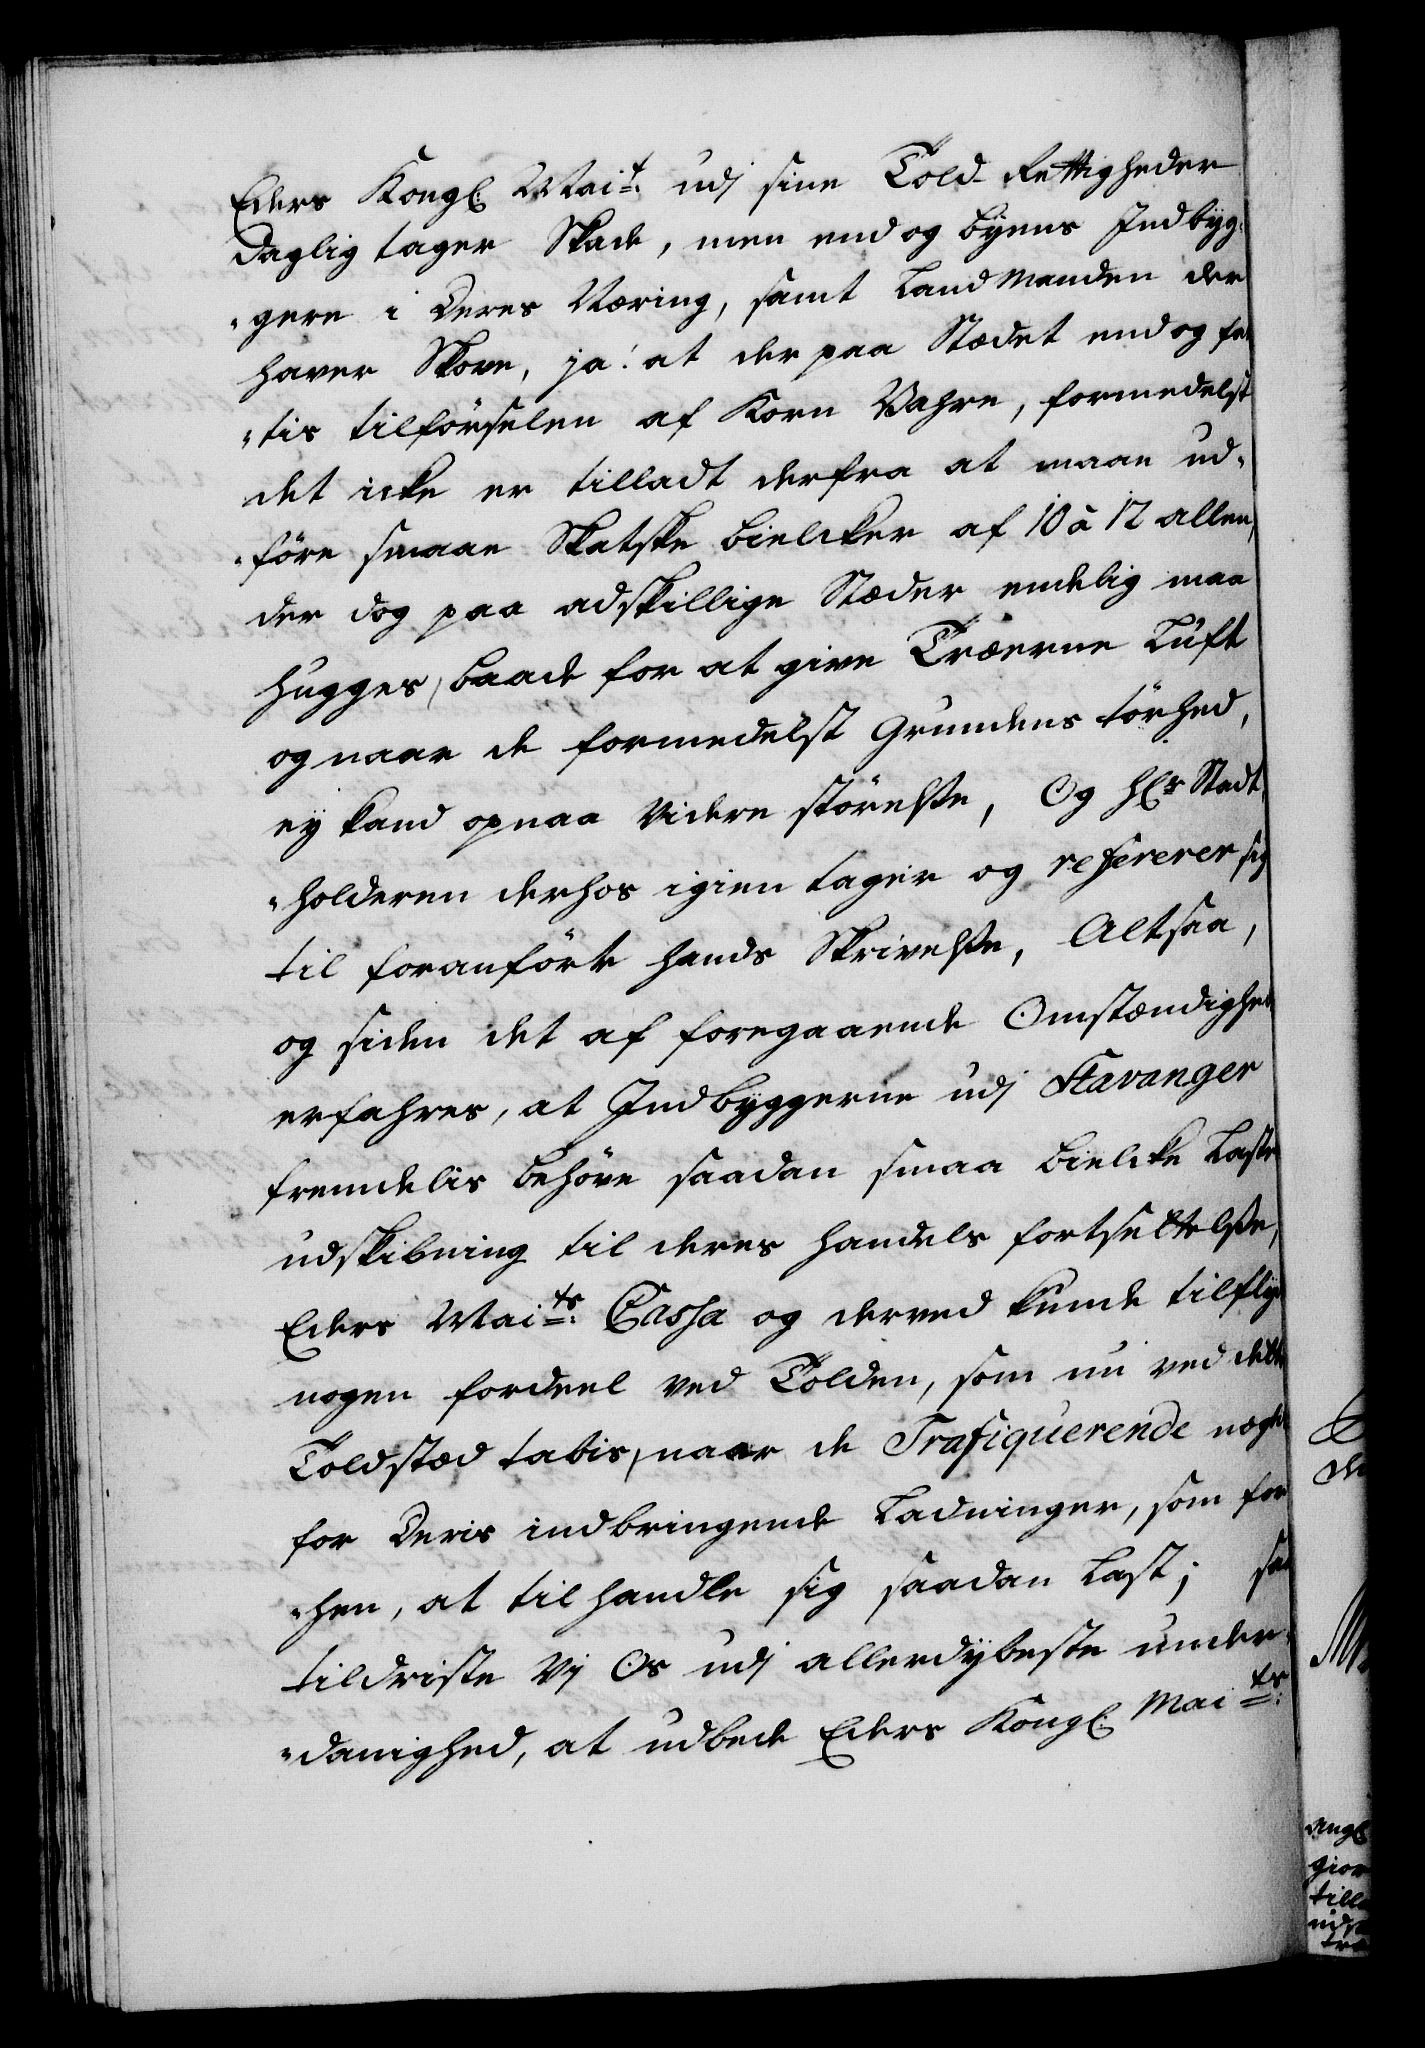 Eders Kongl: Mait: udj sine Told-Rettigheder
daglig tager Skade, men end og byens Indbyg-
"gere i Deres Næring, samt Land Manden der
haver Skove, ja! at der paa Stædet end og
"tis tilførselen af Korn Vahre, formedelst
det icke er tilladt derfra at maae ud-
"føre smaae Skatske bielcker af 10 à 12 allen,
der dog paa adskillige Stæder endelig maa
hugges, baade for at give Træerne Luft
og naar de formedelst Grundens tørhed,
ej kand opnaa videre størelße, Og Hr Stadt-
"holderen derhos igien tager og refererer sig
til foranførte hands Skrivelße, Altsaa,
og siden det af foregaaende Omstændighed
erfahres, at Indbyggerne udj Stavanger
fremdelis behøve saadan smaa bielcke Lasts
udskibning til deres handels fortsettelße,
Eders Maits: Cassa og derved kunde tilflyde
nogen fordeel ved Tolden, som nu ved dette
Toldstæd tabis, naar de Trafiquerende
for Deris indbringende Ladninger, som for
"hen, at tilhandle sig saadan Last; saa
tildriste Vj Os udj allerdybeste under-
"danighed, at udbede Eders Kongl: Maits: